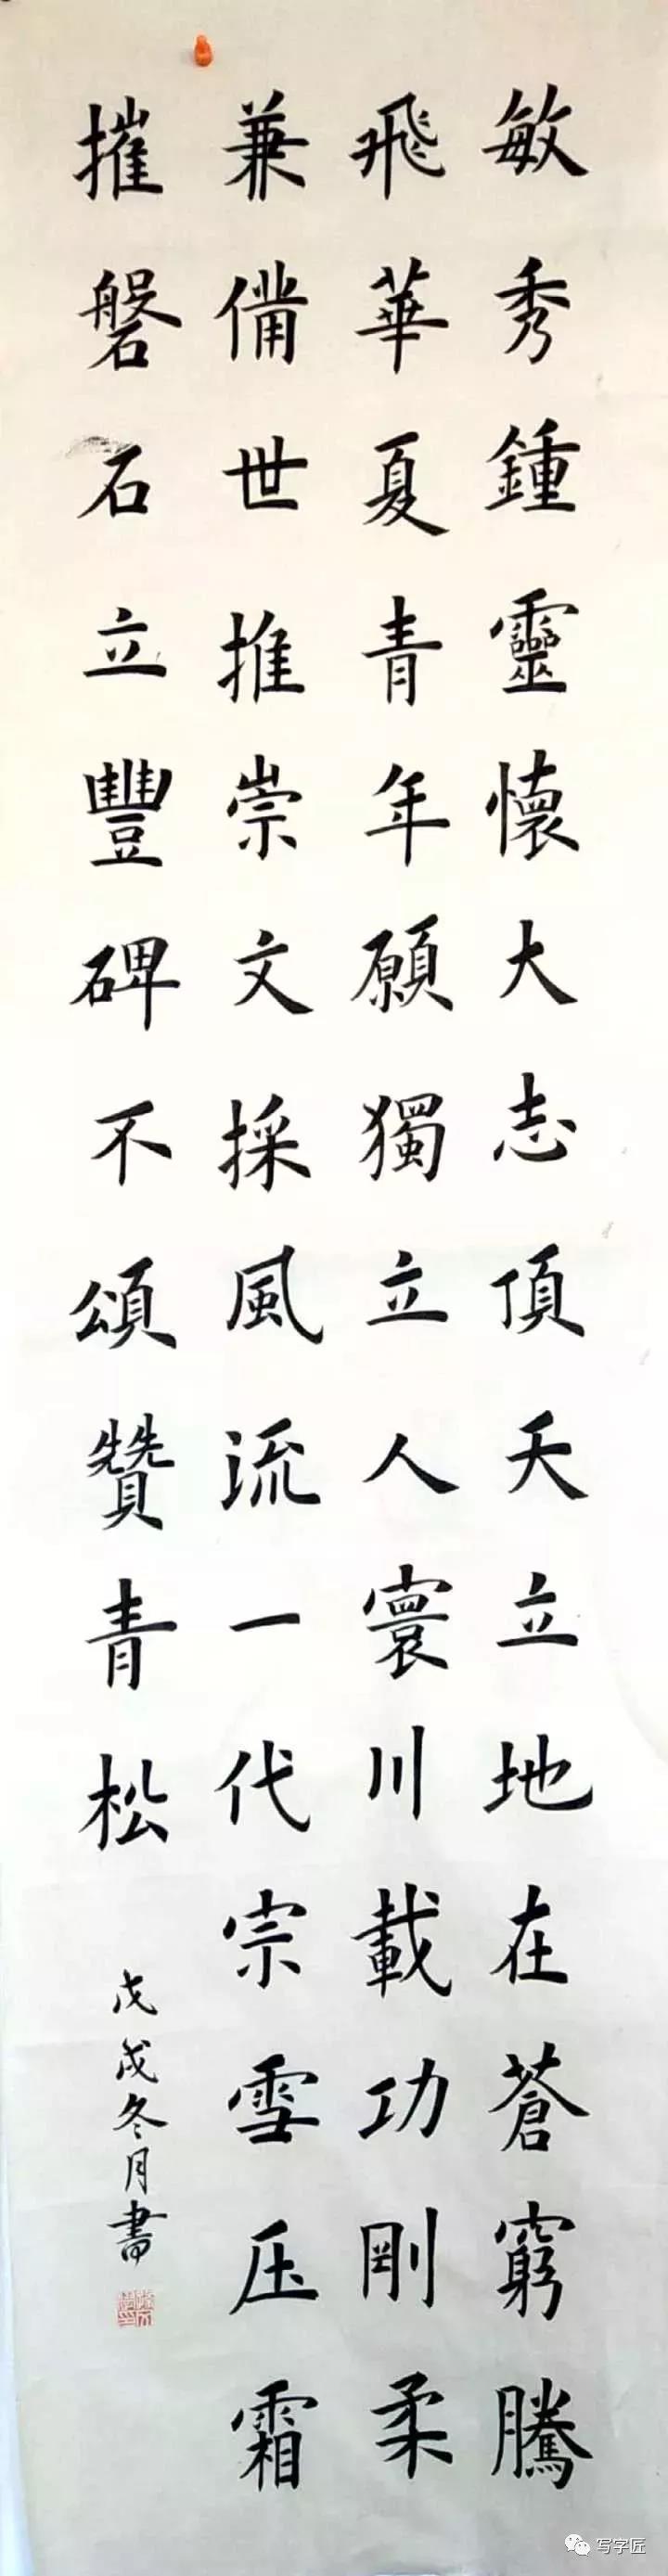 敏秀鍾靈懷大志頂天立地在蒼窮騰
飛華夏青年願獨立人寰川載功剛柔
兼備世推崇文採風流一代宗雪压霜
摧磐石立豐碑不頌贊青松
戊戌冬月書
写字匠